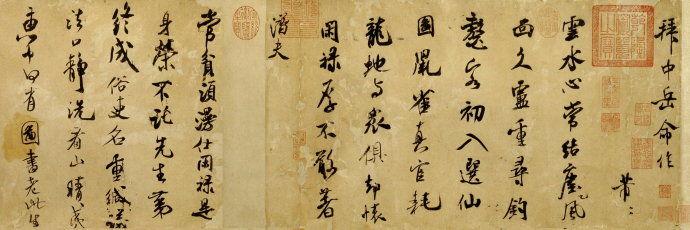 拜中岳命作
芾〻
雲水心常結風塵
面久盧重尋釣
鼇客初入選仙
圖鼠雀真官耗
龍蛇與衆俱却懷
閑禄厚不敢著
潛夫
常貧須漫仕閑禄是
身榮不託先生第
終成俗吏名重緘議
法口静洗看山晴夷
惠中何有圖書老此生